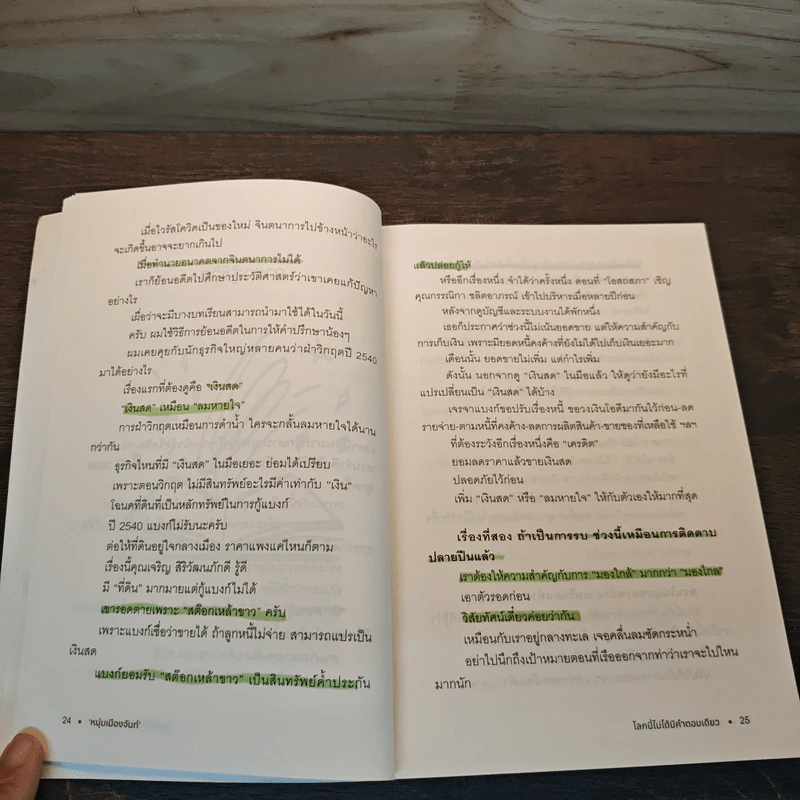 เมื่อไวรัสโควิดเป็นของใหม่ จินตนาการไปข้างหน้าว่าอะไร
จะเกิดขึ้นอาจจะยากเกินไป
เมื่อทำนายอนาคตจากจินตนาการไม่ได้
เราก็ย้อนอดีตไปศึกษาประวัติศาสตร์ว่าเขาเคยแก้ปัญหา
อย่างไร
เผื่อว่าจะมีบางบทเรียนสามารถนำมาใช้ได้ในวันนี้
ครับ ผมใช้วิธีการย้อนอดีตในการให้คำปรึกษาน้องๆ
ผมเคยคุยกับนักธุรกิจใหญ่หลายคนว่าฝ่าวิกฤตปี 2540
มาได้อย่างไร
เรื่องแรกที่ต้องดูคือ "เงินสด"
"เงินสด" เหมือน "ลมหายใจ"
การฝ่าวิกฤตเหมือนการดำน้ำ ใครจะกลั้นลมหายใจได้นาน
กว่ากัน
ธุรกิจไหนที่มี "เงินสด" ในมือเยอะ ย่อมได้เปรียบ
เพราะตอนวิกฤต ไม่มีสินทรัพย์อะไรมีค่าเท่ากับ "เงิน"
โฉนดที่ดินที่เป็นหลักทรัพย์ในการกู้แบงก์
ปี 2540 แบงก์ไม่รับนะครับ
ต่อให้ที่ดินอยู่ใจกลางเมือง ราคาแพงแค่ไหนก็ตาม
เรื่องนี้คุณเจริญ สิริวัฒนภักดี รู้ดี
มี "ที่ดิน" มากมายแต่กู้แบงก์ไม่ได้
เขารอดตายเพราะ "สต๊อกเหล้าขาว" ครับ
เพราะแบงก์เชื่อว่าขายได้ ถ้าลูกหนี้ไม่จ่าย สามารถแปรเป็น
เงินสด
แบงก์ยอมรับ "สต๊อกเหล้าขาว" เป็นสินทรัพย์ค้ำประกัน
24 • 'หนุ่มเมืองจันท์'
แล้วปล่อยกู้ให้
หรืออีกเรื่องหนึ่ง จำได้ว่าครั้งหนึ่ง ตอนที่ "โอสถสภา" เชิญ
คุณกรรณิกา ชลิตอาภรณ์ เข้าไปบริหารเมื่อหลายปีก่อน
หลังจากดูบัญชีและระบบงานได้พักหนึ่ง
เธอก็ประกาศว่าช่วงนี้ไม่เน้นยอดขาย แต่ให้ความสำคัญกับ
การเก็บเงิน เพราะมียอดหนี้คงค้างที่ยังไม่ได้ไปเก็บเงินเยอะมาก
เดือนนั้น ยอดขายไม่เพิ่ม แต่กำไรเพิ่ม
ดังนั้น นอกจากดู "เงินสด" ในมือแล้ว ให้ดูว่ายังมีอะไรที่
แปรเปลี่ยนเป็น "เงินสด" ได้บ้าง
เจรจาแบงก์ขอปรับเรื่องหนี้ ขอวงเงินโอดีมากันไว้ก่อน-ลด
รายจ่าย-ตามหนี้ที่คงค้าง-ลดการผลิตสินค้า-ขายของที่เหลือใช้ ฯลฯ
ที่ต้องระวังอีกเรื่องหนึ่งคือ "เครดิต"
ยอมลดราคาแล้วขายเงินสด
ปลอดภัยไว้ก่อน
เพิ่ม "เงินสด" หรือ "ลมหายใจ" ให้กับตัวเองให้มากที่สุด
เรื่องที่สอง ถ้าเป็นการรบ ช่วงนี้เหมือนการติดดาบ
ปลายปืนแล้ว
เราต้องให้ความสำคัญกับการ "มองใกล้" มากกว่า "มองไกล"
เอาตัวรอดก่อน
วิสัยทัศน์เดี๋ยวค่อยว่ากัน
เหมือนกับเราอยู่กลางทะเล เจอคลื่นลมซัดกระหน่ำ
อย่าไปนึกถึงเป้าหมายตอนที่เรือออกจากท่าว่าเราจะไปไหน
มากนัก
โลกนี้ไม่ได้มีคำตอบเดียว • 25